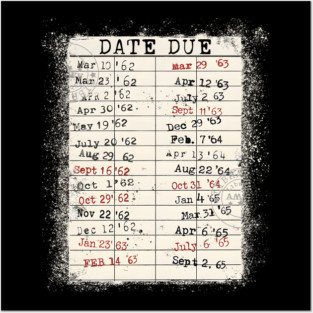 DATE DUE
Mar 10 '62 mar 29 '63
Mar 23 '62 Apr 12 '63
Apr 2 '62 July 2 63
Apr 30 '62 Sept 11 '63
May 19 '62 Dec 29 '63
July 20 '62 Feb. 7 '64
Aug 29 62 Apr 13 '64
Sept 16 '62 Aug 22 '64
Oct 1 '62 Oct 31 '64
Oct 29 '62 Jan 4 '65
Nov 22 '62 Mar 31 '65
Dec 12 '62. Apr 6 '65
Jan 23 '63 July 6 '65
FEB 14 '63 Sept 2. 65